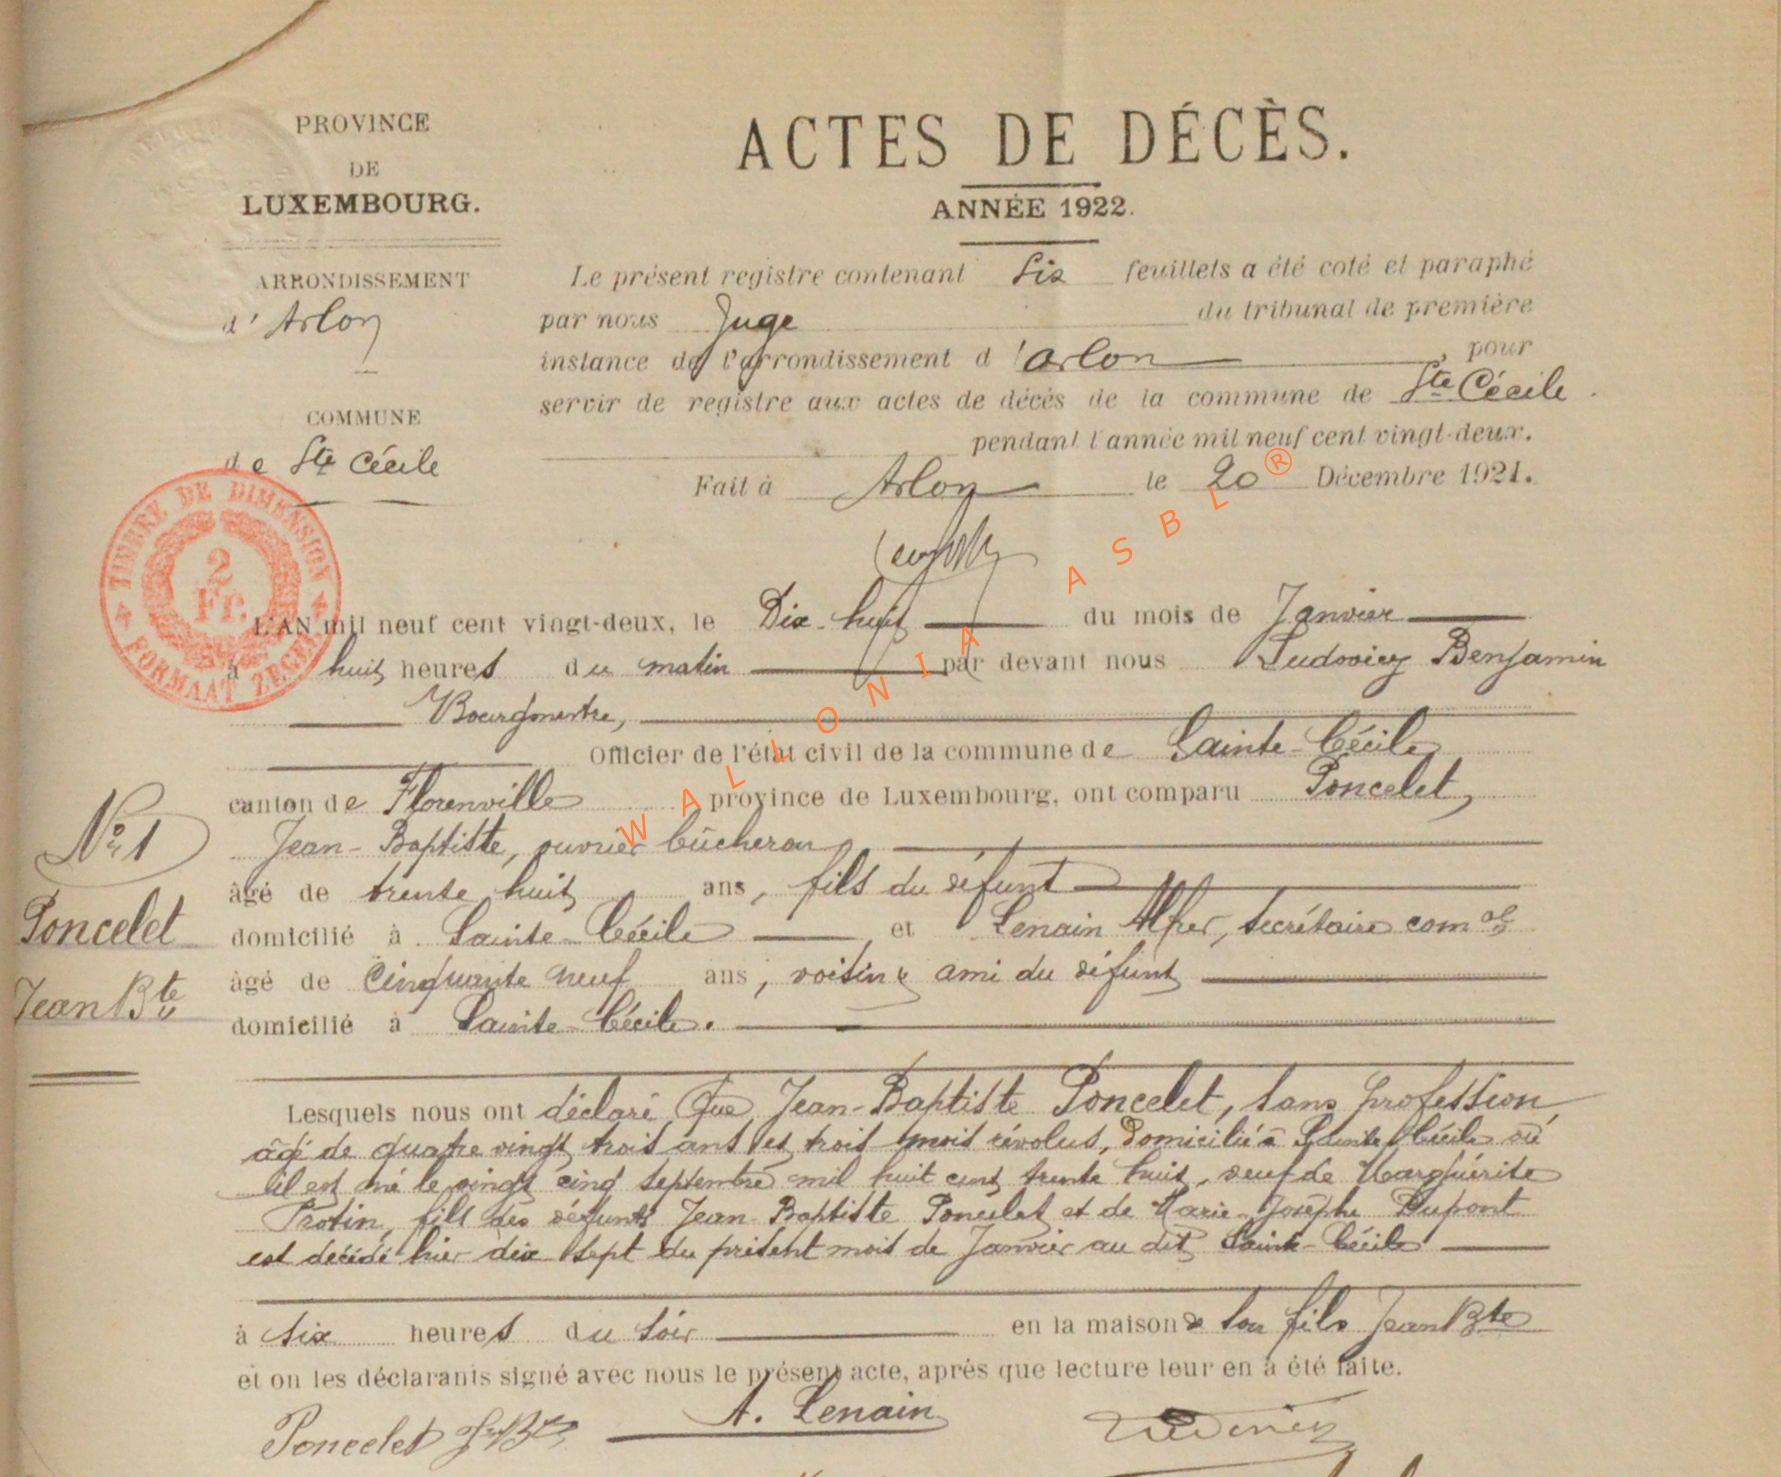 PROVINCE
DE
LUXEMBOURG.
ARRONDISSEMENT
d' Arlon
COMMUNE
de Ste Cécile
TIMBRE DE DIMENSION
2
Fr.
FORMAAT ZEGEL
ACTES DE DÉCÈS.
ANNÉE 1922.
Le présent registre contenant Six feuillets a été coté et paraphé
par nous Juge du tribunal de première
instance de l'arrondissement d'Arlon, pour
servir de registre aux actes de décès de la commune de Ste Cécile.
pendant l'année mil neuf cent vingt-deux.
Fait à Arlon le 20 Décembre 1921.
WALLONIA ASBL ®
L'AN mil neuf cent vingt-deux, le Dix-huit du mois de Janvier
à huit heures du matin par devant nous Ludovicy Benjamin
Bourgmestre,
Officier de l'état civil de la commune de Sainte-Cécile
canton de Florenville province de Luxembourg, ont comparu Poncelet,
Jean-Baptiste, ouvrier bûcheron
âgé de trente huit ans, fils du défunt
domicilié à Sainte-Cécile et Lenain Alfred, secrétaire comal
âgé de Cinquante neuf ans, voisin & ami du défunt
domicilié à Sainte-Cécile.
No 1
Poncelet
Jean Bte
Lesquels nous ont déclaré Que Jean-Baptiste Poncelet, sans profession,
âgé de quatre vingt trois ans et trois mois révolus, domicilié à Sainte Cécile où
il est né le vingt cinq septembre mil huit cent trente huit, veuf de Marguérite
Protin, fils des défunts Jean-Baptiste Poncelet et de Marie-Josèphe Dupont
est décédé hier dix sept du présent mois de Janvier au dit Sainte-Cécile
à six heures du soir en la maison de son fils Jean Bte
et on les déclarants signé avec nous le présent acte, après que lecture leur en a été faite.
Poncelet J Bte A. Lenain